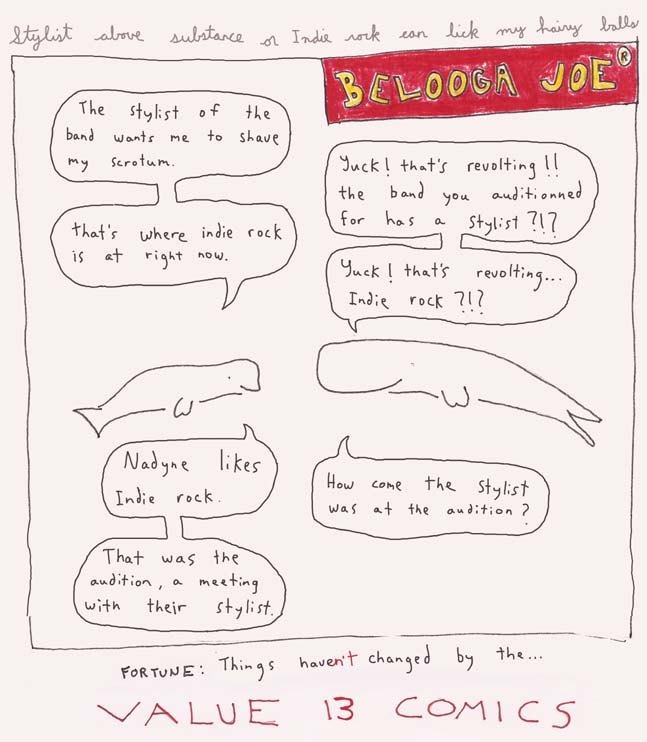 Stylist above substance or Indie rock can lick my hairy balls
BELOOGA JOE®
The stylist of the
band wants me to shave
my scrotum.
that's where indie rock
is at right now.
Yuck! that's revolting!!
the band you auditionned
for has a stylist?!?
Yuck! that's revolting...
Indie rock?!?
Nadyne likes
Indie rock.
That was the
audition, a meeting
with their stylist.
How come the stylist
was at the audition?
FORTUNE: Things haven't changed by the...
VALUE 13 COMICS